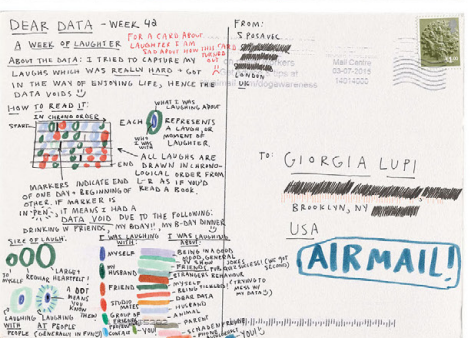 DEAR DATA - WEEK 42
A WEEK OF LAUGHTER
FOR A CARD ABOUT....
LAUGHTER I AM
SAD ABOUT HOW THIS CARD
TURNED
OUT
ABOUT THE DATA: I TRIED TO CAPTURE MY
LAUGHS WHICH WAS REALLY HARD + GOT
IN THE WAY OF ENJOYING LIFE, HENCE THE
DATA VOIDS
HOW TO READ IT:
IN CHRONO ORDER
START
END
WHAT I WAS
LAUGHING ABOUT
EACH
REPRESENTS
A LAUGH, OR
MOMENT OF
LAUGHTER
WHO I
WAS
WITH
ALL LAUGHS ARE
DRAWN IN CHRONO-
LOGICAL ORDER FROM
L-R AS IF YOU'D
READ A BOOK.
MARKERS INDICATE END
OF ONE DAY + BEGINNING OF
OTHER. IF MARKER IS
IN "PEN", IT MEANS I HAD A
DATA VOID DUE TO THE FOLLOWING:
DRINKING W FRIENDS, MY BDAY!!, MY B-DAY DINNER
SIZE OF LAUGH:
TO
MYSELF
REGULAR
LARGE +
HEARTFELT!
A DOT
MEANS
YOU
KNOW
THEM
LAUGHING
WITH
PEOPLE
LAUGHING
AT PEOPLE
(GENERALLY IN FUN)
I WAS LAUGHING
WITH:
MYSELF
HUSBAND
FRIEND
STUDIO
MATES
GROUP OF
FRIENDS
YOU!
I WAS LAUGHING
ABOUT:
BEING IN A GOOD
MOOD, GENERAL
TV SHOW
JOKES
FRIENDS
PUB QUIZ SUCCESS! (WE GOT
SECOND)
STRANGERS BEHAVIOUR
MYSELF
BEING TICKLED
(TRYING TO
MESS W
MY DATA)
DEAR DATA
HUSBAND
ANIMAL
PARENT
SCHADENFREUDE
PHONE
YOU!
FROM:
S POSAVEC
LONDON
UK
Mail Centre
03-07-2015
14014000
TO:
GIORGIA LUPI
BROOKLYN, NY
USA
AIRMAIL!